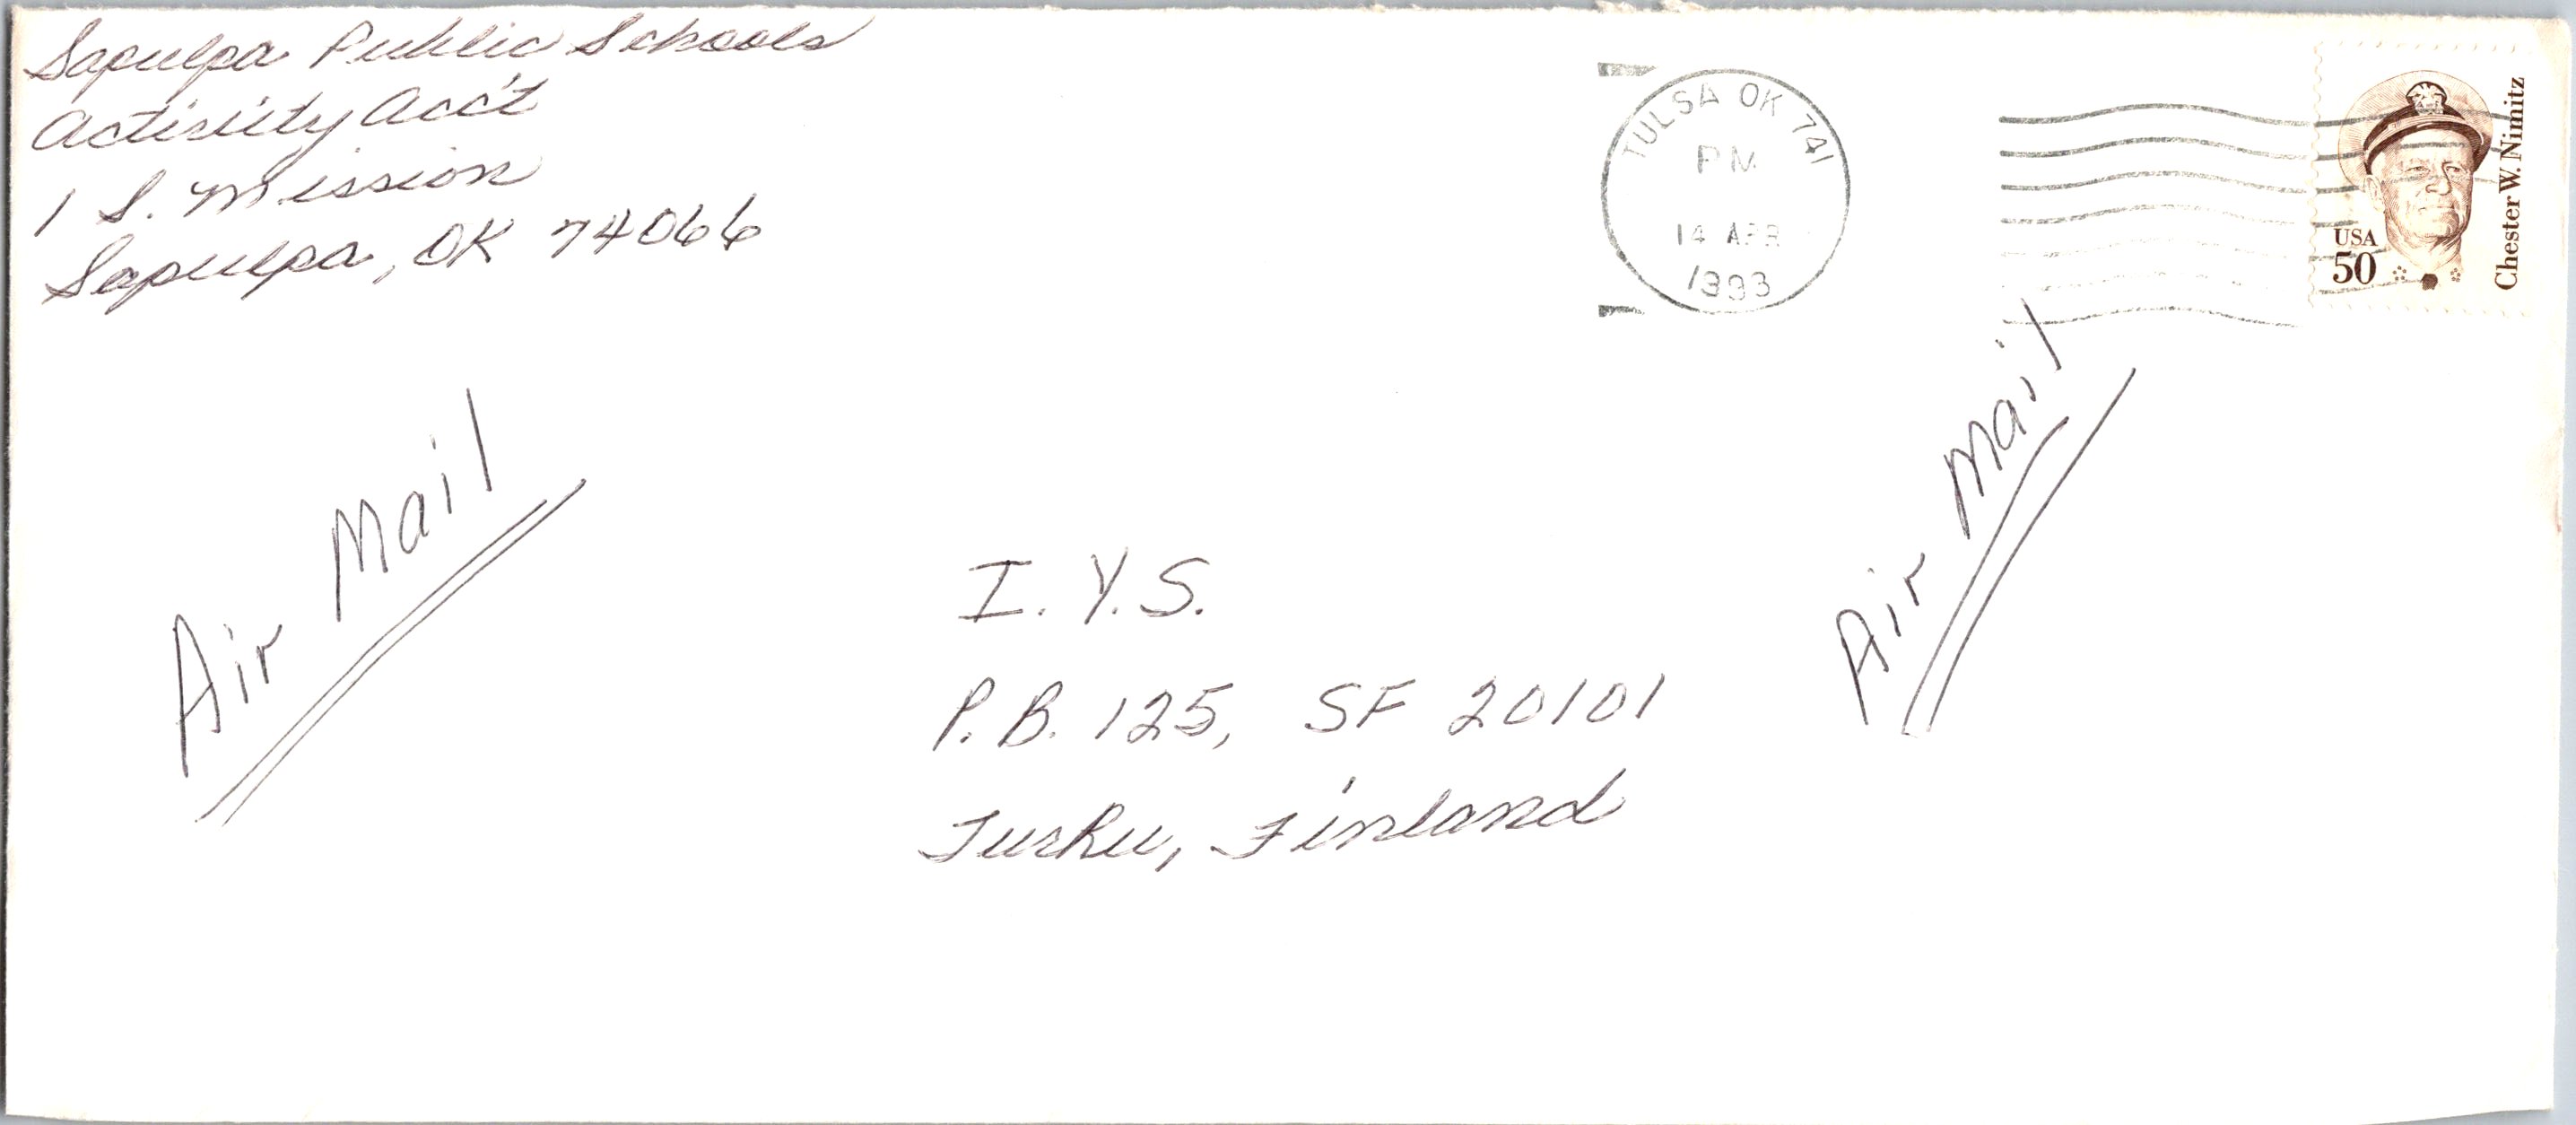 Sapulpa Public Schools
Activity Acc't
1 S. Mission
Sapulpa, OK 74066
TULSA OK 741
PM
14 APR
1993
USA
50
Chester W. Nimitz
Air Mail
Air Mail
I. Y. S.
P. B. 125, SF 20101
Turku, Finland